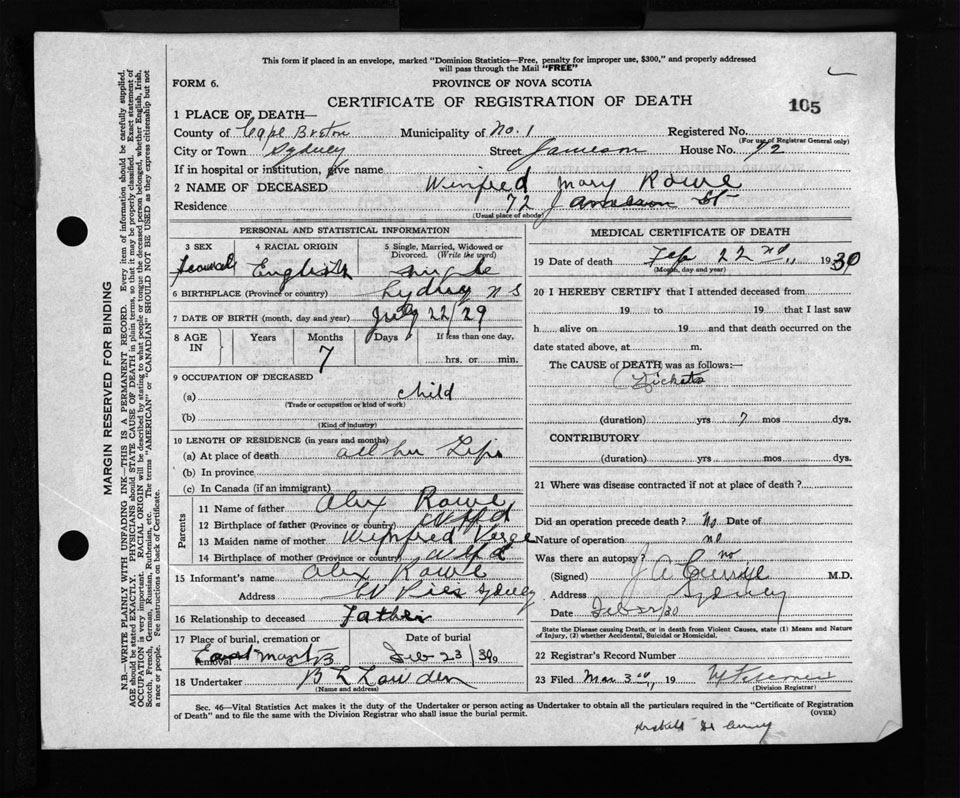 This form if placed in an envelope, marked "Dominion Statistics—Free, penalty for improper use, $300," and properly addressed
will pass through the Mail "FREE"
FORM 6.
PROVINCE OF NOVA SCOTIA
CERTIFICATE OF REGISTRATION OF DEATH
105
1 PLACE OF DEATH—
County of Cape Breton Municipality of No. 1 Registered No.
(For use of Registrar General only)
City or Town Sydney Street Jameson House No. 72
If in hospital or institution, give name
2 NAME OF DECEASED Winfred Mary Rowe
Residence 72 Jameson St
(Usual place of abode)
PERSONAL AND STATISTICAL INFORMATION
3 SEX 4 RACIAL ORIGIN 5 Single, Married, Widowed or Divorced. (Write the word)
Female English single
6 BIRTHPLACE (Province or country) Sydney N S
7 DATE OF BIRTH (month, day and year) July 22/29
8 AGE IN Years Months Days If less than one day,
7 hrs. or min.
9 OCCUPATION OF DECEASED
(a) child
(Trade or occupation or kind of work)
(b)
(Kind of industry)
10 LENGTH OF RESIDENCE (in years and months)
(a) At place of death all her Life
(b) In province
(c) In Canada (if an immigrant)
Parents
11 Name of father Alex Rowe
12 Birthplace of father (Province or country) Nfld
13 Maiden name of mother Winfred Verge
14 Birthplace of mother (Province or country) Nfld
15 Informant's name Alex Rowe
Address Sydney
16 Relationship to deceased Father
17 Place of burial, cremation or removal Date of burial
CB Feb 23/30 19
18 Undertaker B L Lowden
(Name and address)
MEDICAL CERTIFICATE OF DEATH
19 Date of death Feb 22nd, 1930
(Month, day and year)
20 I HEREBY CERTIFY that I attended deceased from
19 to 19 that I last saw
h alive on 19 and that death occurred on the
date stated above, at m.
The CAUSE of DEATH was as follows:—
Rickets
(duration) yrs 7 mos dys.
CONTRIBUTORY
(duration) yrs mos dys.
21 Where was disease contracted if not at place of death?
Did an operation precede death? No Date of
Nature of operation no
Was there an autopsy? no
(Signed) J A Currie M.D.
Address Sydney
Date Feb 22/30
State the Disease causing Death, or in death from Violent Causes, state (1) Means and Nature of Injury, (2) whether Accidental, Suicidal or Homicidal.
22 Registrar's Record Number
23 Filed Mar 3rd, 19
(Division Registrar)
Sec. 46—Vital Statistics Act makes it the duty of the Undertaker or person acting as Undertaker to obtain all the particulars required in the "Certificate of Registration
of Death" and to file the same with the Division Registrar who shall issue the burial permit.
(OVER)
MARGIN RESERVED FOR BINDING
N.B.—WRITE PLAINLY WITH UNFADING INK—THIS IS A PERMANENT RECORD. Every item of information should be carefully supplied.
AGE should be stated EXACTLY. PHYSICIANS should STATE CAUSE OF DEATH in plain terms, so that it may be properly classified. Exact statement of
OCCUPATION is very important. RACIAL ORIGIN will be described by stating to what people or tongue the deceased person belonged, whether English, Irish,
Scotch, French, German, Russian, Ruthenian, etc. The terms "AMERICAN" or "CANADIAN" SHOULD NOT BE USED as they express citizenship but not
a race or people. Fee instructions on back of Certificate.